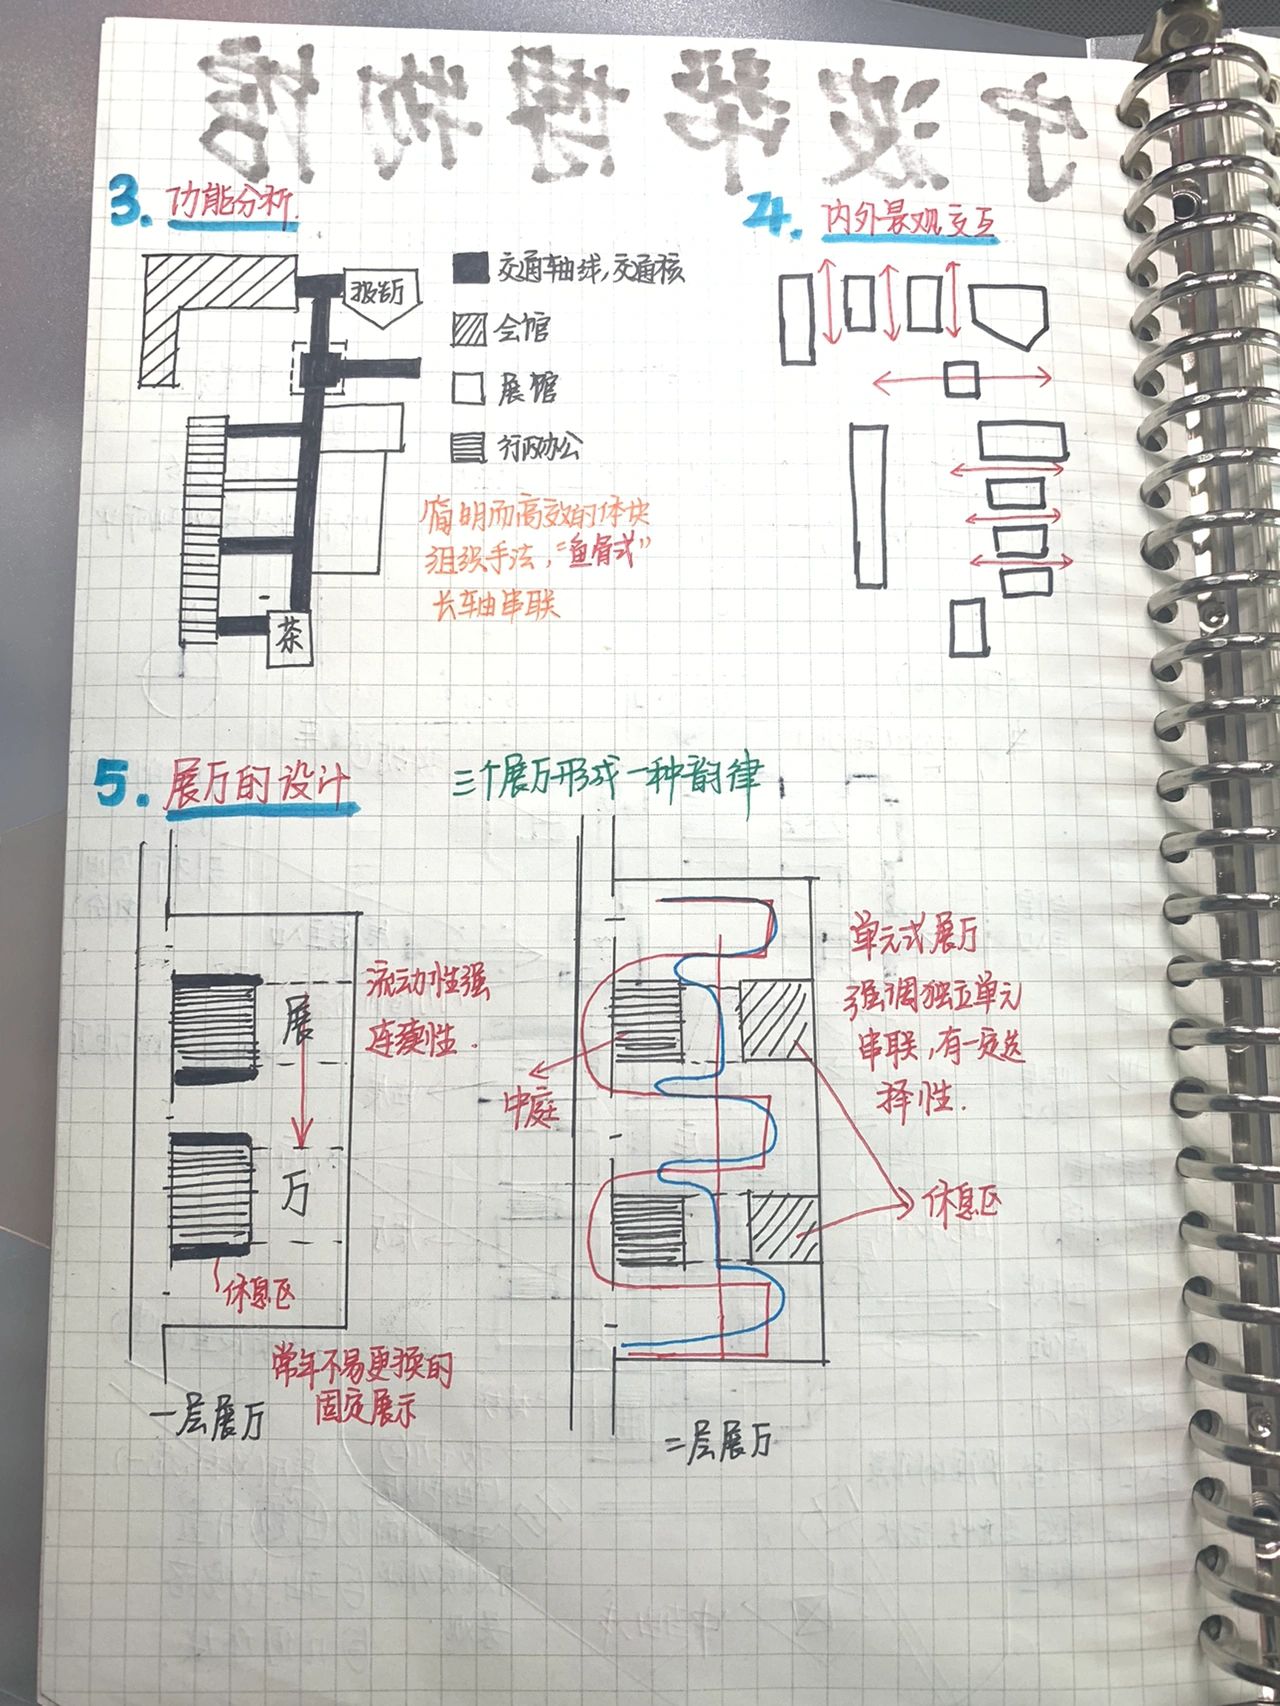 宁波帮博物馆
3. 功能分析.
报告厅
茶
交通轴线,交通核
会馆
展馆
行政办公
简明而高效的体块
组织手法,“鱼骨式”
长轴串联
4. 内外景观交互
5. 展厅的设计
三个展厅形成一种韵律
展
厅
流动性强
连续性.
休息区
常年不易更换的
固定展示
一层展厅
中庭
单元式展厅
强调独立单元
串联,有一定选
择性.
休息区
二层展厅